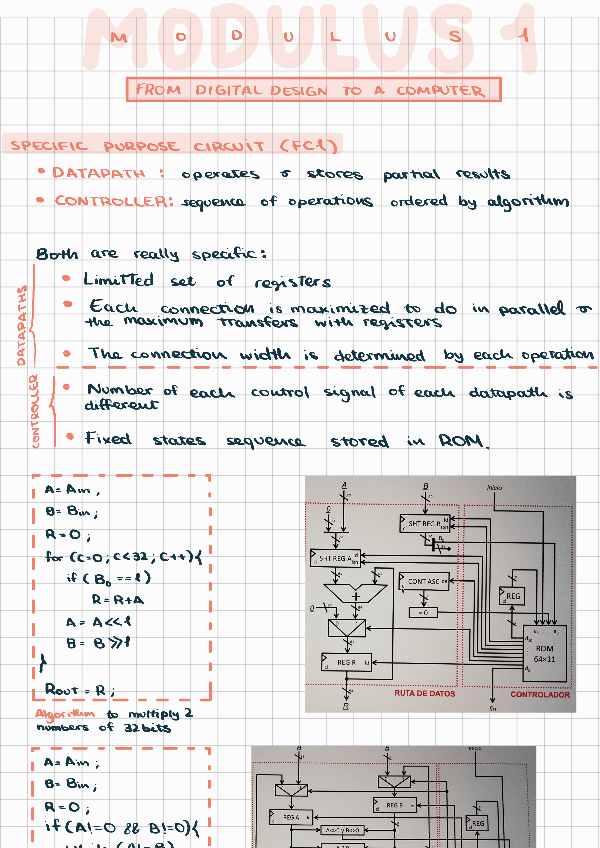 MODULUS 1
M O D U L U S 1
FROM DIGITAL DESIGN TO A COMPUTER
SPECIFIC PURPOSE CIRCUIT (FC1)
• DATAPATH : operates & stores partial results
• CONTROLLER: sequence of operations ordered by algorithm
Both are really specific:
DATAPATHS
• Limitted set of registers
• Each connection is maximized to do in parallel &
the maximum transfers with registers
• The connection width is determined by each operation
CONTROLLER
• Number of each control signal of each datapath is
different
• Fixed states sequence stored in ROM.
A = Ain ;
B = Bin ;
R = 0 ;
for (C=0 ; C<32 ; C++){
if ( B0 == 1)
R = R+A
A = A<<1
B = B >>1
}
Rout = R ;
Algorithm to multiply 2
numbers of 32 bits
A
B
Inicio
0
SHT REG B
ld
SHT REG A
CONT ASC
+
= 0
REG
0
REG R
ROM
64×11
RUTA DE DATOS
CONTROLADOR
R
Fin
A = Ain ;
B = Bin ;
R = 0 ;
if (A!=0 && B!=0){
while (A!=B)
REG B
REG A
REG